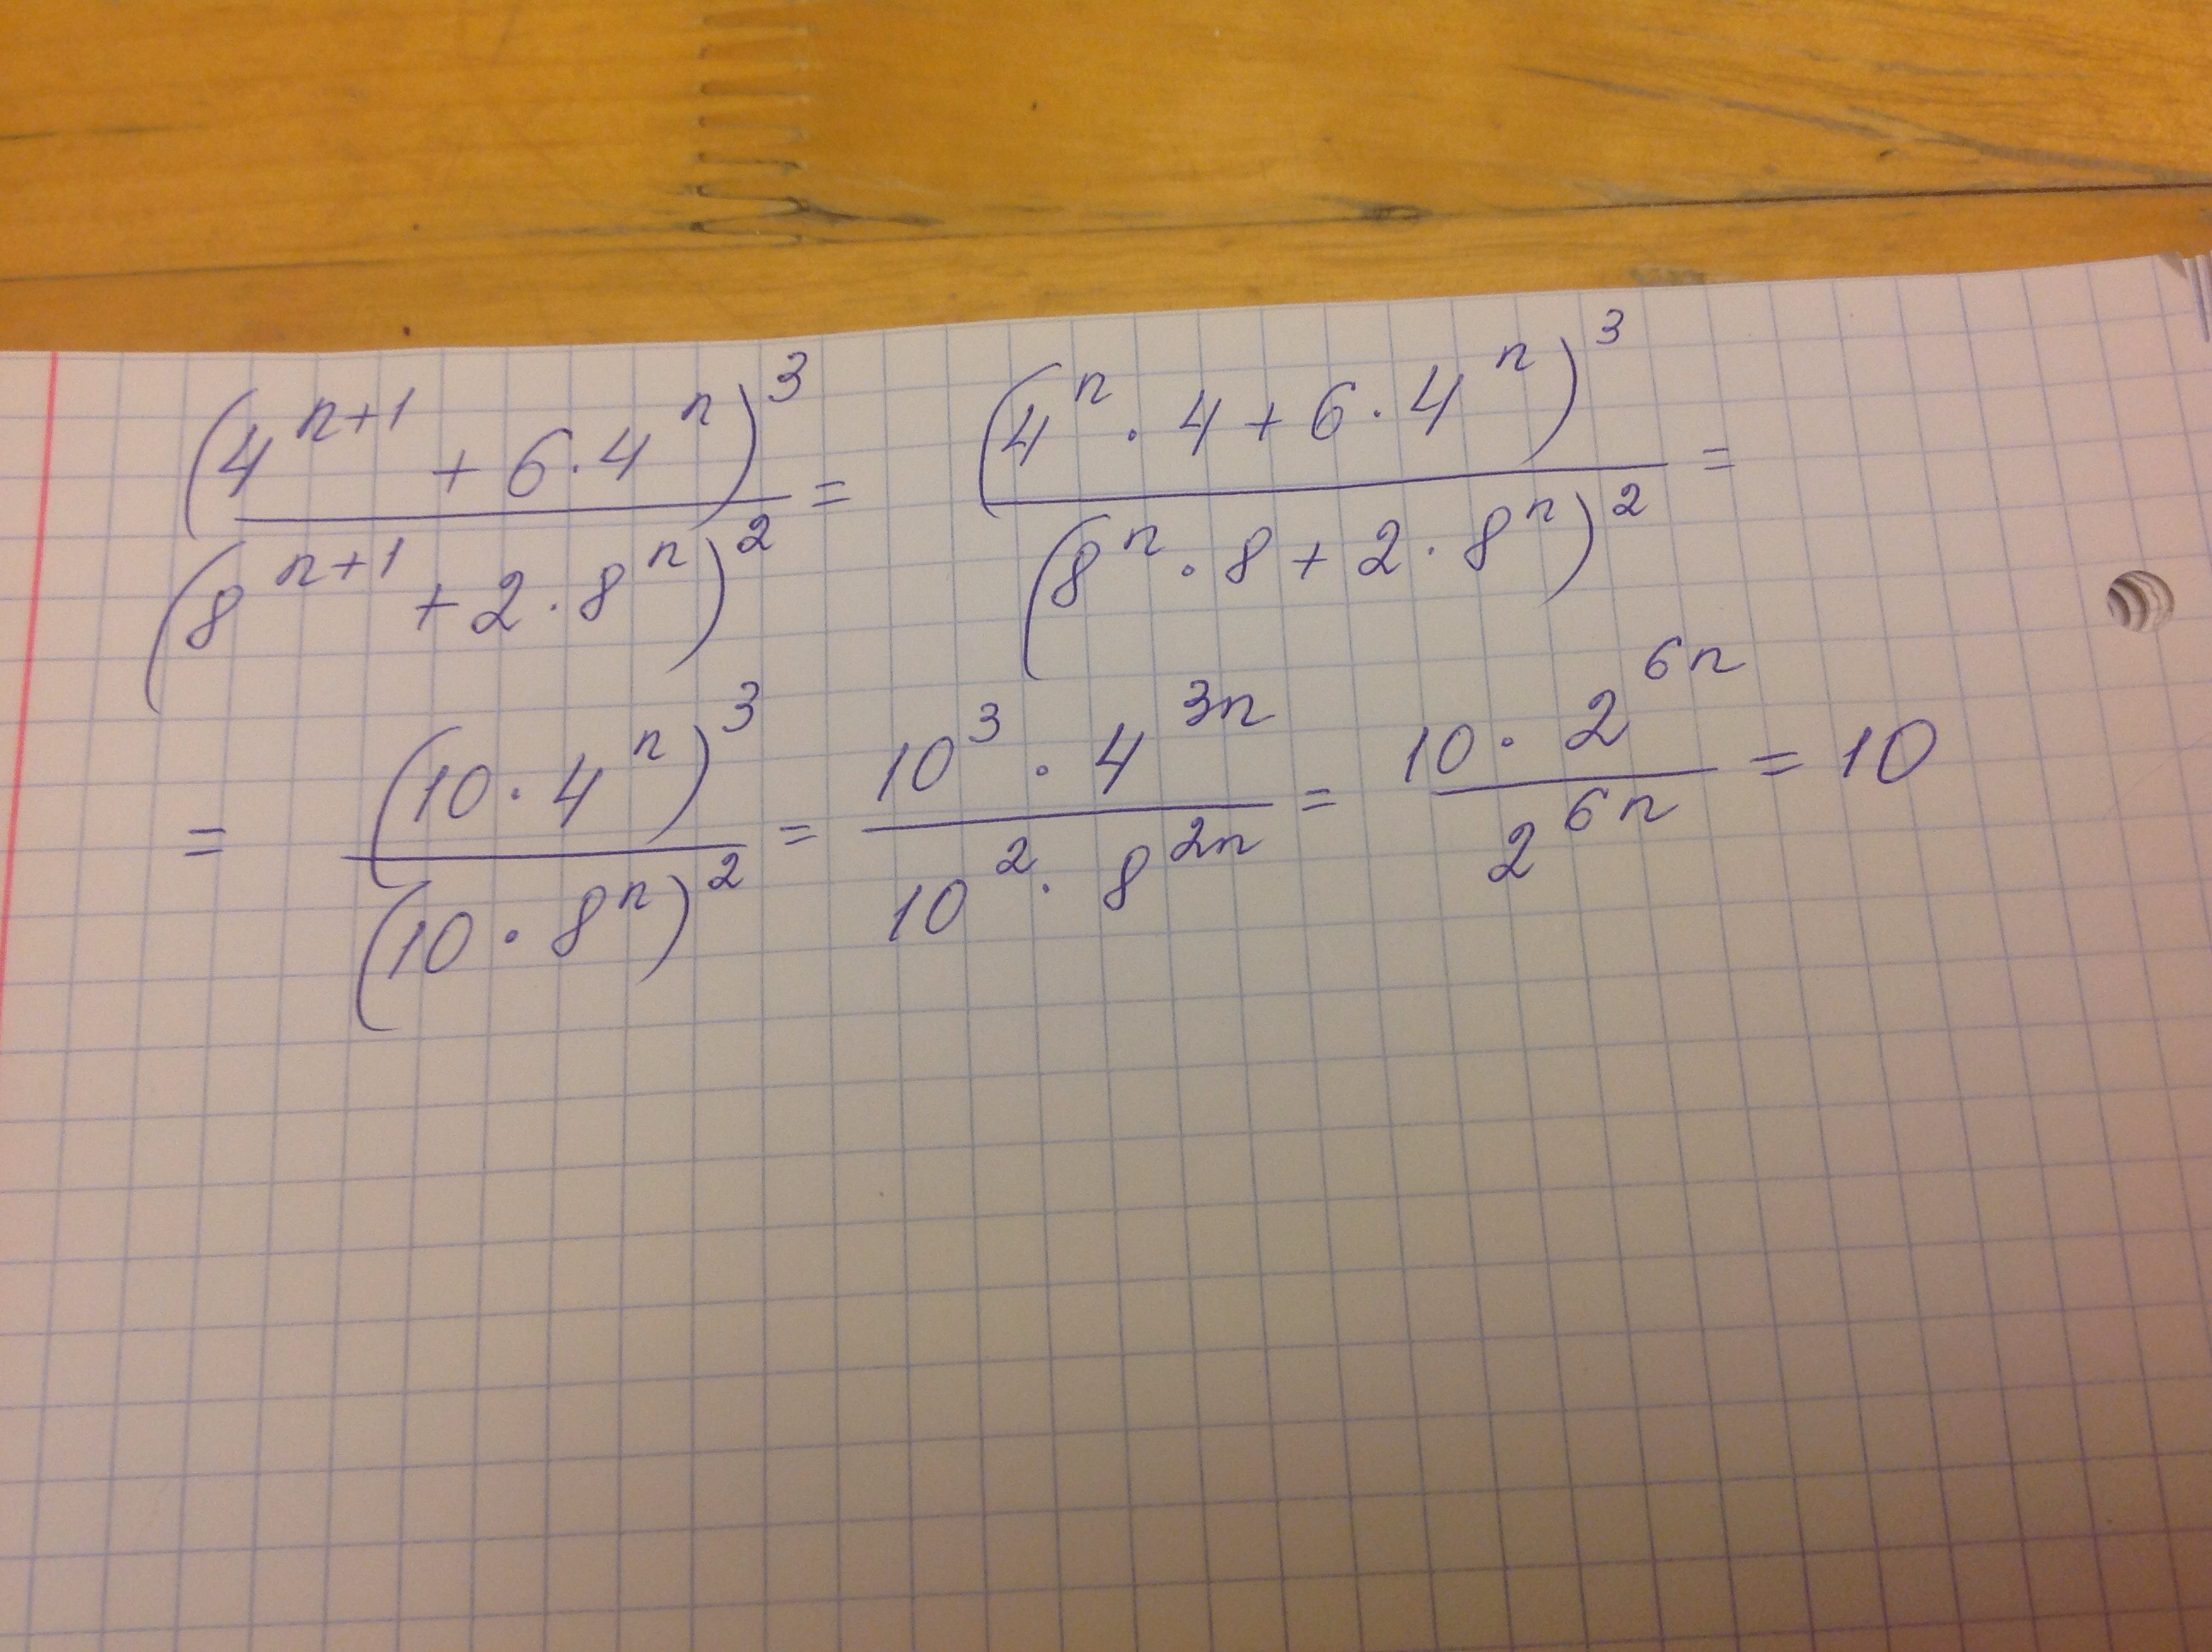 (4^{n+1} + 6·4^n)^3 / (8^{n+1} + 2·8^n)^2 = (4^n · 4 + 6·4^n)^3 / (8^n · 8 + 2·8^n)^2 =
= (10·4^n)^3 / (10·8^n)^2 = 10^3 · 4^{3n} / 10^2 · 8^{2n} = 10 · 2^{6n} / 2^{6n} = 10